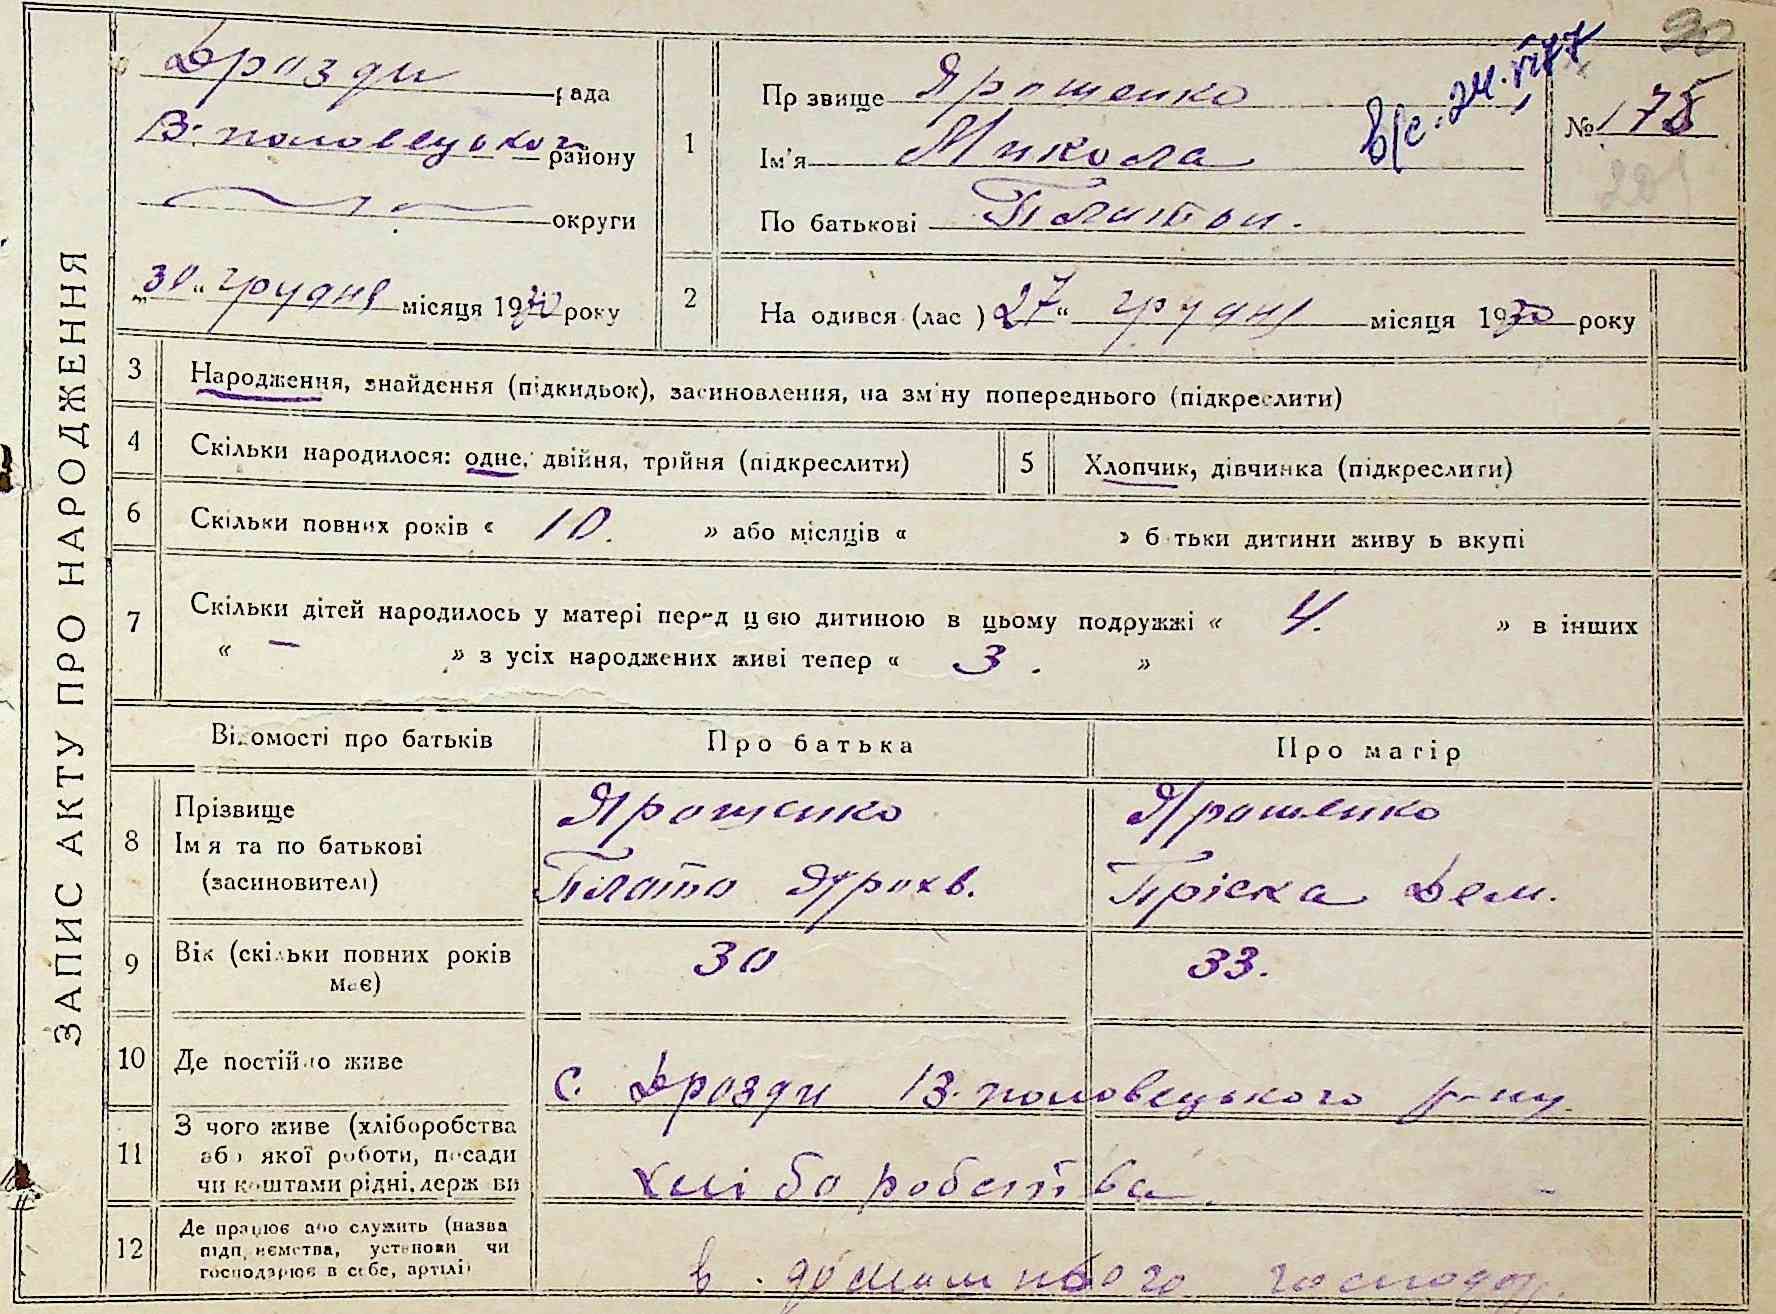 ЗАПИС АКТУ ПРО НАРОДЖЕННЯ
Дрозди рада
В. половецького району
округи
„30“ грудня місяця 1930 року
90
№ 175
201
1
Прзвище Ярошенко
Ім'я Микола
По батькові Платон.
в/с. 24.VI 77
2
На одився (лас ) 27“ грудня місяця 1930 року
3 Народження, знайдення (підкидьок), засиновлення, на зміну попереднього (підкреслити)
4 Скільки народилося: одне, двійня, трійня (підкреслити)
5 Хлопчик, дівчинка (підкреслити)
6 Скільки повних років « 10. » або місяців « » б тьки дитини живу ь вкупі
7 Скільки дітей народилось у матері перед цією дитиною в цьому подружжі « 4. » в інших
« – » з усіх народжених живі тепер « 3. »
Відомості про батьків Про батька Про матір
8 Прізвище
Ім'я та по батькові
(засиновителі)
Ярошенко
Плато Ярохв.
Ярошенко
Пріска Дем.
9 Вік (скільки повних років
має)
30 33.
10 Де постійно живе
с. Дрозди В. половецького р-ну.
11 З чого живе (хліборобства
або якої роботи, посади
чи коштами рідні, держ ви
хліборобства
12 Де працює або служить (назва
підп ємства, установи чи
господарює в себе, артілі)
в
господар.